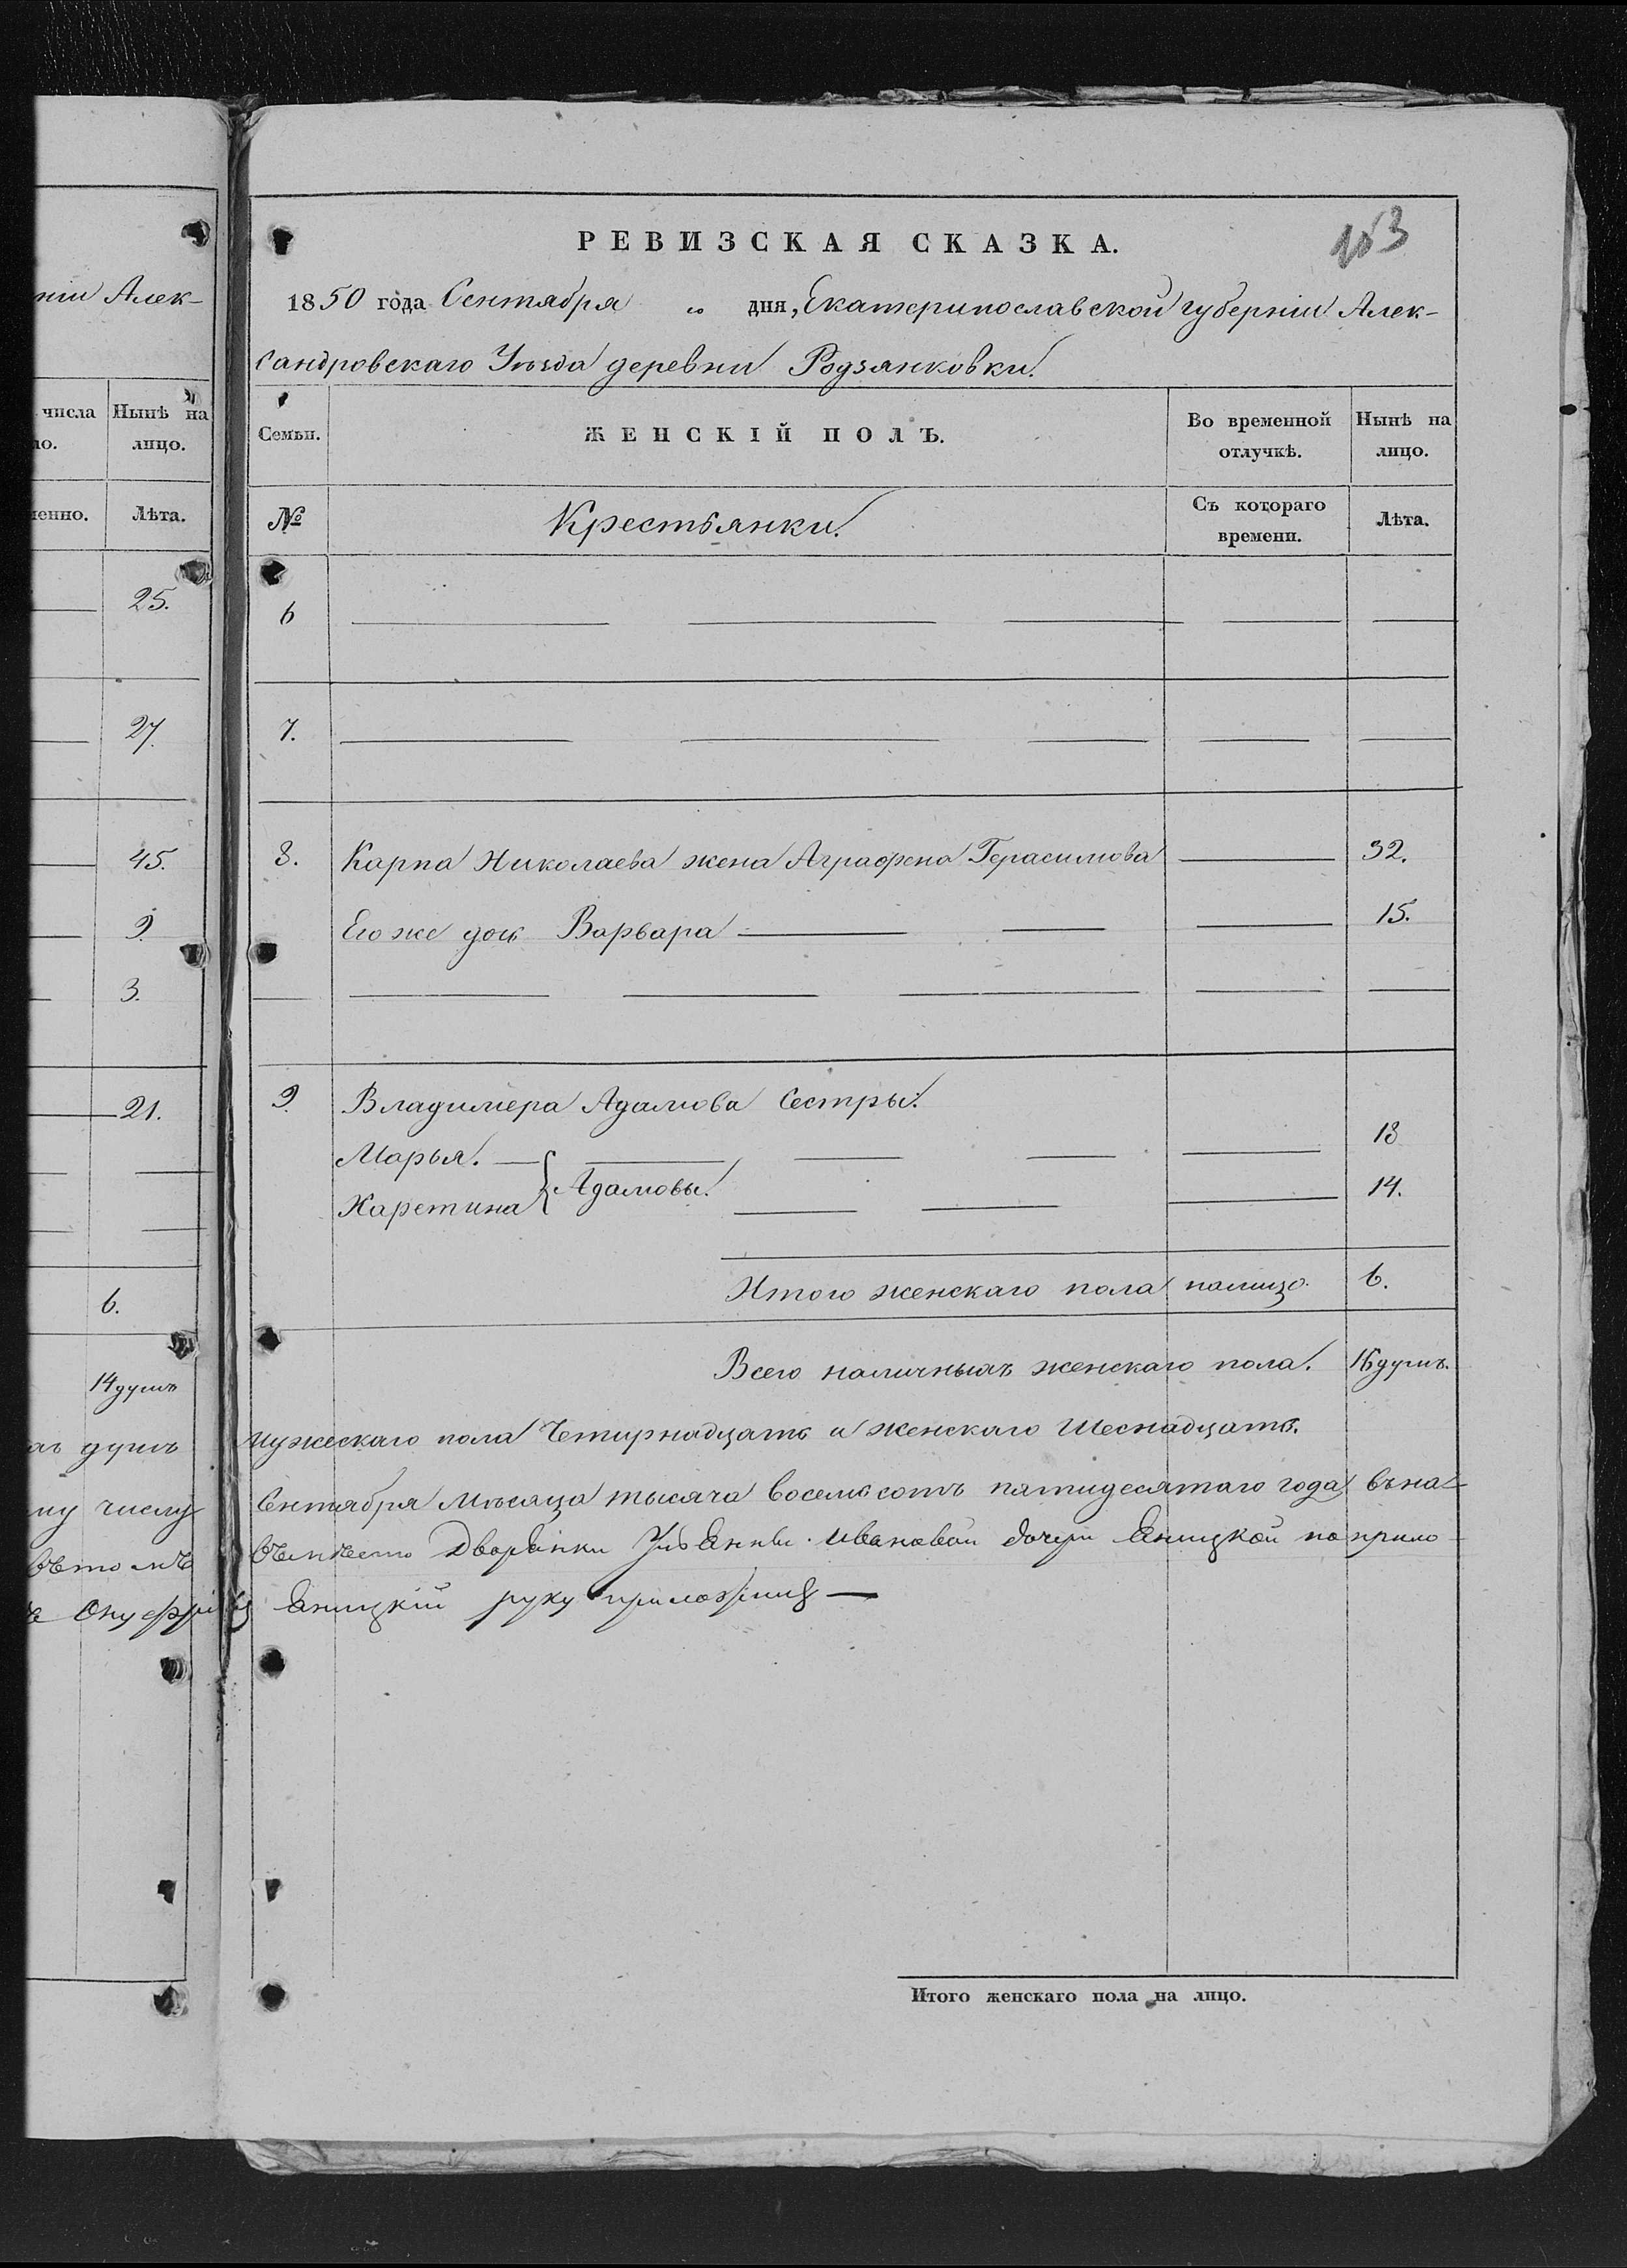 нiи Алек-
числа Нынѣ на
ло. лицо.
менно. Лѣта.
25.
27.
45.
9.
3.
21.
6.
14 душъ
душъ
му числу
Онуфрій
103
РЕВИЗСКАЯ СКАЗКА.
1850 года Сентября „ дня, Екатеринославской губерніи Алек-
сандровскаго Уѣзда деревни Родзянковки.
Семьи. ЖЕНСКІЙ ПОЛЪ. Во временной отлучкѣ. Нынѣ на лицо.
№ Крестьянки. Съ котораго времени. Лѣта.
6
7.
8. Карпа Николаева жена Аграфена Герасимова 32.
Его же дочь Варвара 15.
9. Владимера Адамова Сестры.
Марья. 18
Харетина } Адамовы. 14.
Итого женскаго пола налицо 6.
Всего наличныхъ женскаго пола. 16 душъ.
мужескаго пола Четырнадцать и женскаго Шеснадцать.
Сентября Мѣсяца тысяча восемьсотъ пятидесятаго года въ на-
Дворянки Ивановой дочери Яницкой по прило-
Яницкій руку приложилъ
Итого женскаго пола на лицо.